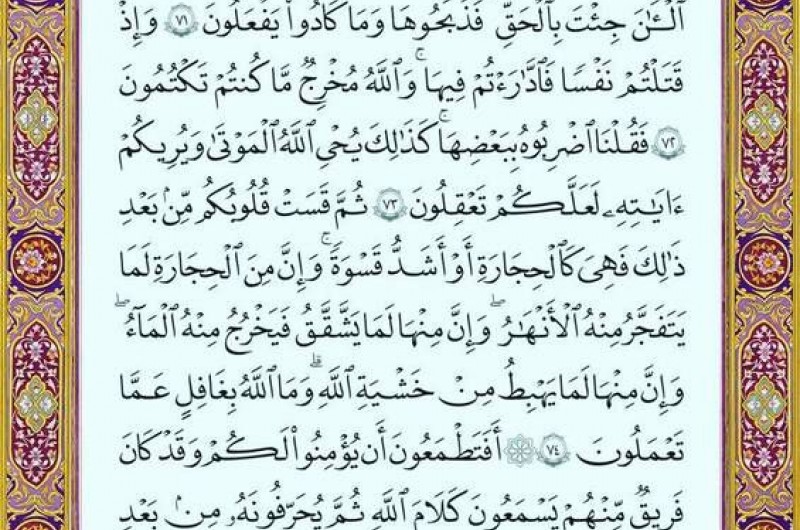 ٱلْـَٰٔنَ جِئْتَ بِٱلْحَقِّ ۚ فَذَبَحُوهَا وَمَا كَادُوا۟ يَفْعَلُونَ ٧١ وَإِذْ
قَتَلْتُمْ نَفْسًا فَٱدَّٰرَْٰٔتُمْ فِيهَا ۖ وَٱللَّهُ مُخْرِجٌ مَّا كُنتُمْ تَكْتُمُونَ
٧٢ فَقُلْنَا ٱضْرِبُوهُ بِبَعْضِهَا ۚ كَذَٰلِكَ يُحْىِ ٱللَّهُ ٱلْمَوْتَىٰ وَيُرِيكُمْ
ءَايَٰتِهِۦ لَعَلَّكُمْ تَعْقِلُونَ ٧٣ ثُمَّ قَسَتْ قُلُوبُكُم مِّنۢ بَعْدِ
ذَٰلِكَ فَهِىَ كَٱلْحِجَارَةِ أَوْ أَشَدُّ قَسْوَةً ۚ وَإِنَّ مِنَ ٱلْحِجَارَةِ لَمَا
يَتَفَجَّرُ مِنْهُ ٱلْأَنْهَٰرُ ۚ وَإِنَّ مِنْهَا لَمَا يَشَّقَّقُ فَيَخْرُجُ مِنْهُ ٱلْمَآءُ ۚ
وَإِنَّ مِنْهَا لَمَا يَهْبِطُ مِنْ خَشْيَةِ ٱللَّهِ ۗ وَمَا ٱللَّهُ بِغَٰفِلٍ عَمَّا
تَعْمَلُونَ ٧٤ أَفَتَطْمَعُونَ أَن يُؤْمِنُوا۟ لَكُمْ وَقَدْ كَانَ
فَرِيقٌ مِّنْهُمْ يَسْمَعُونَ كَلَٰمَ ٱللَّهِ ثُمَّ يُحَرِّفُونَهُۥ مِنۢ بَعْدِ